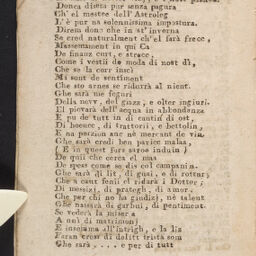 Donca disna pur senza pagura
Ch' el mestee dell' Astrolegh
L' è pur na solennissima impostura.
Direm donc che in st' inverna
Se cred naturalment ch' el farà frecc,
Massemament in qui Ca
De finanz curt, e strace,
Come i vestii de moda di nost dì,
Che se la corr inscì
Mi sont de sentiment
Che sto annes se ridarrà al nient.
Ghe sarà me seguri
Della nevv, del giazz, e olter ingiuri.
El pioverà dell' acqua in abbondanza
E pu de tutt in di cantin di ost,
Di boeucc, di trattorii, e bettolin,
E na porzion anc nè mercant de vin.
Ghe sarà credi ben parice malaa,
( E in quest fors saroo induin )
De quii che cerca el mas
De spess come se dis col campanin.
Ghe sarà di lit, di guai, e di rottur;
Che a caut fenii el ridarà i Dottor;
Di messizi, di prategh, di amor,
Che per chi no ha giudizi, nè talent
Ghe nassarà di garbui, di pentiment.
Se vedarà la misera
A unì di matrimoni
E insemma all' intrigh, e la lia
Faran cros di delitt trista som
Ghe sarà . . . . e per di tutt